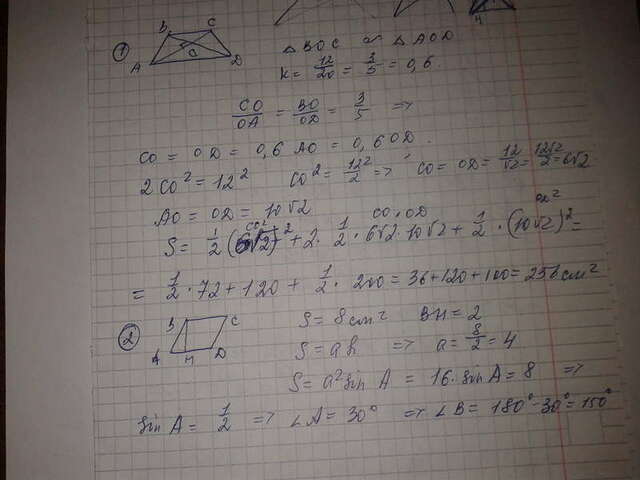 ① B C A O D △BOC ∾ △AOD
K = 12/20 = 3/5 = 0,6.
CO/OA = BO/OD = 3/5 ⇒
CO = OD = 0,6 AO = 0,6 OD.
2CO² = 12² CO² = 12²/2 ⇒ CO = OD = 12/√2 = 12√2/2 = 6√2.
AO = OD = 10√2
S = 1/2 (6√2)² + 2 · 1/2 · 6√2 · 10√2 + 1/2 · (10√2)² =
= 1/2 · 72 + 120 + 1/2 · 200 = 36 + 120 + 100 = 256 cm²
② B C A H D S = 8 cm² BH = 2
S = ah ⇒ a = 8/2 = 4
S = a² sin A = 16 · sin A = 8 ⇒
sin A = 1/2 ⇒ ∠A = 30° ⇒ ∠B = 180° - 30° = 150°